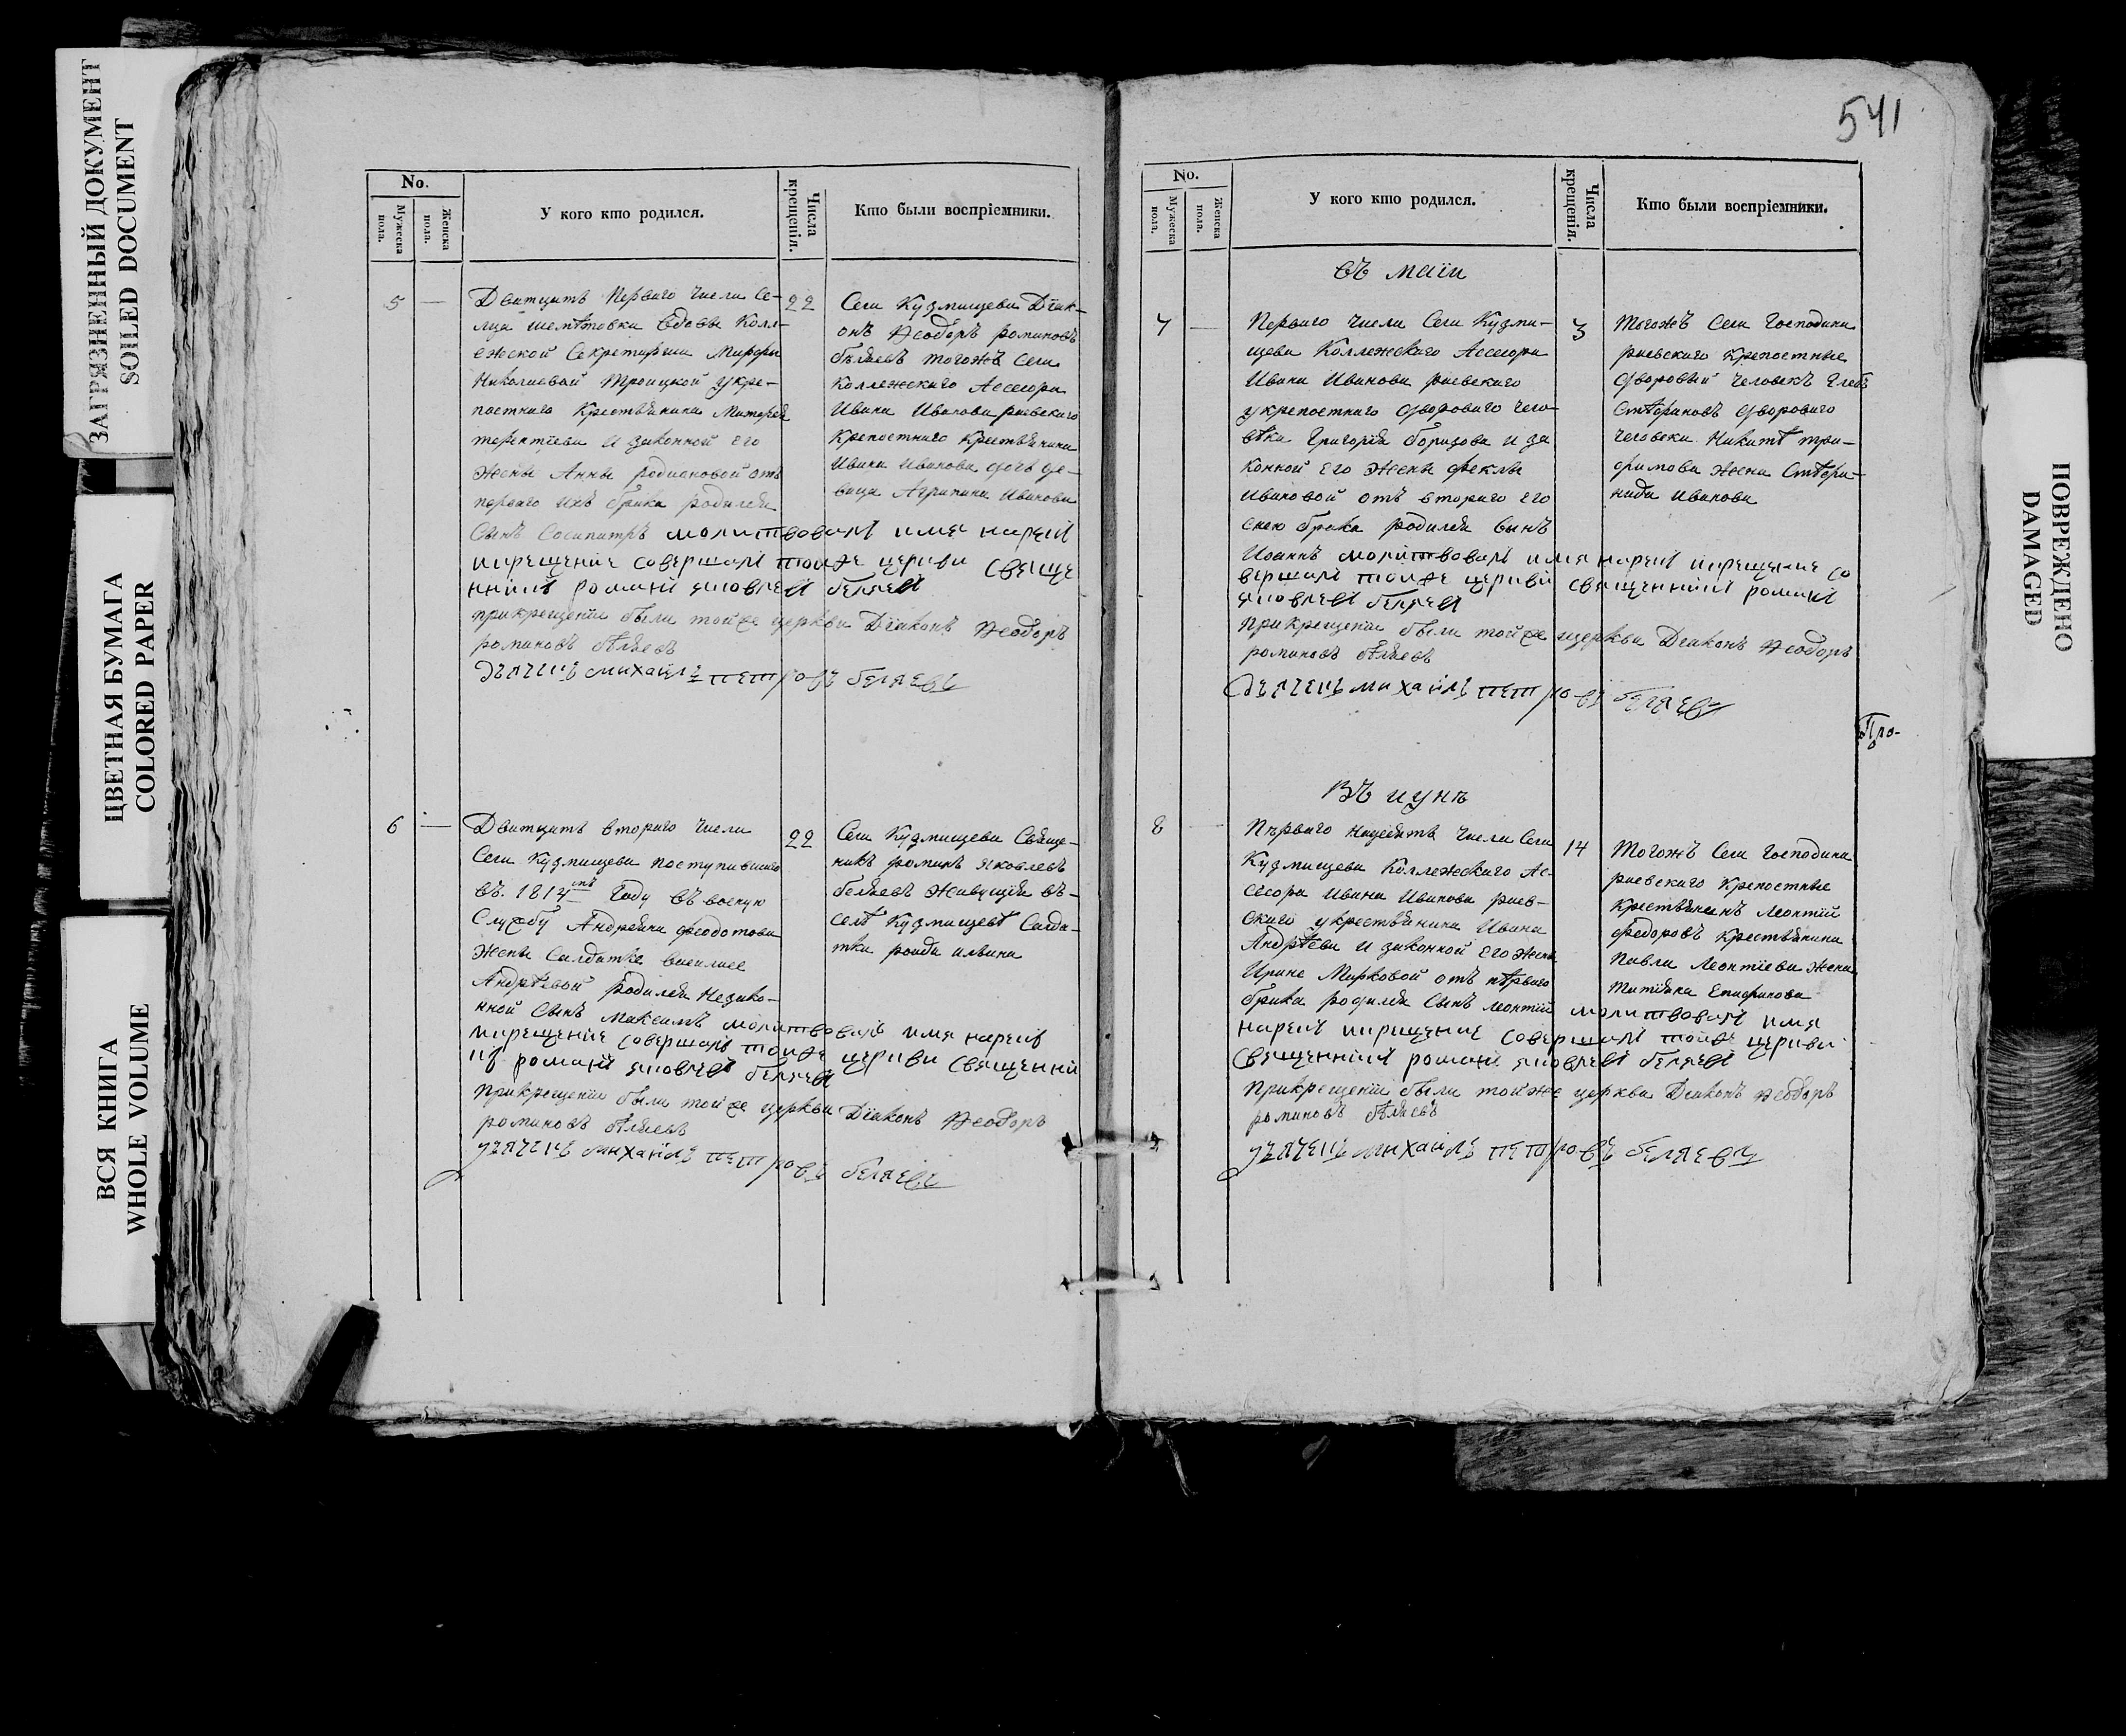 541
No.
Мужеска пола.
Женска пола.
У кого кто родился.
Числа крещенія.
Кто были воспріемники.
5
—
Дватцать Перваго Числа Се-
лца шемѣтовки Вдовы Колл-
ежской Секретарши Марфы
Николаевой Троицкой укре-
постнаго Крестьянина Матфея
терентіева И законной его
жены Анны родионовой отъ
перваго ихъ брака родился
Сынъ Сосипатръ молитвовалъ имя нарекъ
икрещение совершалъ тоиже церкви свяще
нникъ романъ яковлевъ беляевъ
прикрещеніи были тойже церкви Діаконъ Ѳеодоръ
романовъ бѣляевъ
дьячекъ михаилъ петровъ беляевъ
22
Села Кузмищева Діак-
онъ Ѳеодоръ романовъ
бѣляевъ тогожъ Села
Коллежскаго Ассесора
Ивана Иванова раевскаго
Крепостнаго Крестьянина
Ивана Иванова дочь де-
вица Агрипина Иванова
6
—
Дватцать втораго Числа
Села Кузмищева поступившаго
въ 1814мъ Году въ военую
Службу Андреяна федотова
Жены Салдатке василисе
Андрѣевой родился Незако-
нной Сынъ Максимъ молитвовалъ имя нарекъ
икрещение совершалъ тоиже церкви священни
къ романъ яковлевъ беляевъ
прикрещеніи были тойже церкви Діаконъ Ѳеодоръ
романовъ бѣляевъ
дьячекъ михаилъ петровъ беляевъ
22
Села Кузмищева Свяще-
никъ романъ яковлевъ
беляевъ Живущая въ-
селѣ Кузмищевѣ Салда-
тка ильина
No.
Мужеска пола.
Женска пола.
У кого кто родился.
Числа крещенія.
Кто были воспріемники.
въ маіи
7
—
Перваго Числа Села Кузми-
щева Коллежскаго Ассесора
Ивана Иванова раевскаго
укрепостнаго дворового чело-
вѣка Григорія борисова и за
конной его жены феклы
Ивановой отъ втораго его
снею брака родился сынъ
Иоаннъ молитвовалъ имя нарекъ икрещение со
вершалъ тоиже церкви священникъ романъ
яковлевъ беляевъ
прикрещеніи были тойже церкви Діаконъ Ѳеодоръ
романовъ бѣляевъ
дьячекъ михаилъ петровъ беляевъ
3
тогожъ Села Господина
раевскаго Крепостные
дворовый Человекъ Глебъ
Стефановъ дворового
человека Никиты тро-
фимова Жена Стефа-
нида Иванова
Про-
Въ иунѣ
8
—
Перваго Надесять Числа Села
Кузмищева Коллежскаго Ас-
сесора Ивана Иванова раев-
скаго укрестьянина Ивана
Андрѣева И законной Его жены
Ирине Марковой отъ пѣрваго
брака родился Сынъ леонтій молитвовалъ имя
нарекъ икрищение совершалъ тоиже церкви
священникъ романъ яковлевъ беляевъ
прикрещеніи были тойже церкви Діаконъ Ѳеодоръ
романовъ бѣляевъ
дьячекъ михаилъ петровъ беляевъ
14
Тогожъ Села Господина
раевскаго Крепостные
Крестьянинъ Леонтій
федоровъ Крестьянина
Павла Леонтіева Жена
Татіяна Епифанова
ЗАГРЯЗНЕННЫЙ ДОКУМЕНТ
SOILED DOCUMENT
ЦВЕТНАЯ БУМАГА
COLORED PAPER
ВСЯ КНИГА
WHOLE VOLUME
ПОВРЕЖДЕНО
DAMAGED